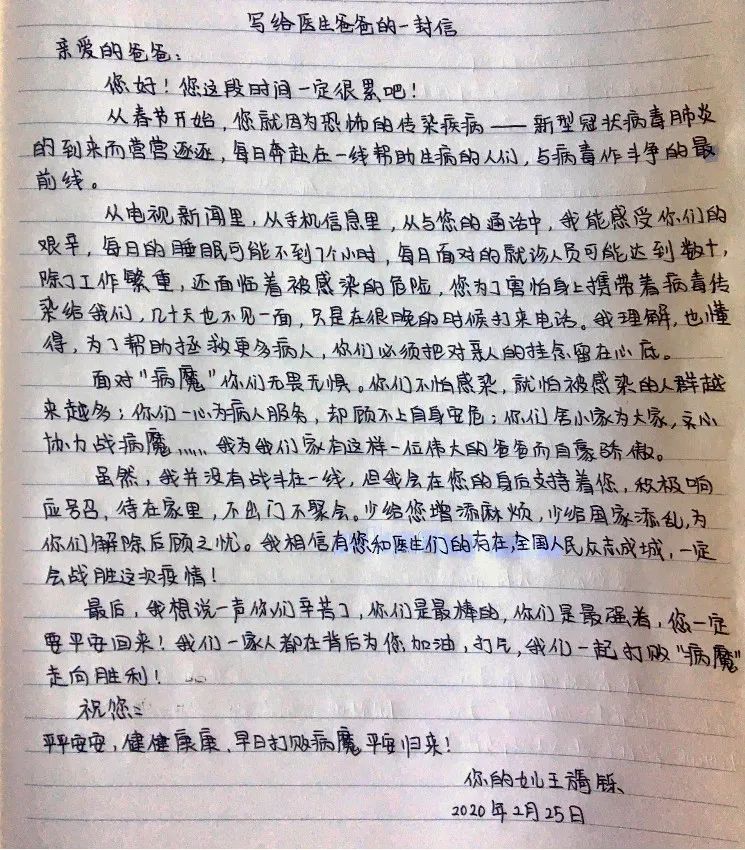 写给医生爸爸的一封信
亲爱的爸爸：
您好！您这段时间一定很累吧！
从春节开始，您就因为恐怖的传染疾病——新型冠状病毒肺炎
的到来而营营逐逐，每日奔赴在一线帮助生病的人们，与病毒作斗争的最
前线。
从电视新闻里，从手机信息里，从与您的通话中，我能感受你们的
艰辛，每日的睡眠可能不到7个小时，每日面对的就诊人员可能达到数十，
除了工作繁重，还面临着被感染的危险，您为了害怕身上携带着病毒传
染给我们，几十天也不见一面，只是在很晚的时候打来电话。我理解，也懂
得，为了帮助拯救更多病人，你们必须把对家人的挂念留在心底。
面对“病魔”你们无畏无惧。你们不怕感染，就怕被感染的人群越
来越多；你们一心为病人服务，却顾不上自身安危；你们舍小家为大家，齐心
协力战病魔……我为我们家有这样一位伟大的爸爸而自豪骄傲。
虽然，我并没有战斗在一线，但我会在您的身后支持着您，积极响
应号召，待在家里，不出门不聚会。少给您增添麻烦，少给国家添乱，为
你们解除后顾之忧。我相信有您和医生们的存在，全国人民众志成城，一定
会战胜这次疫情！
最后，我想说一声你们辛苦了，你们是最棒的，你们是最强着，您一定
要平安回来！我们一家人都在背后为您加油，打气，我们一起打败“病魔”
走向胜利！
祝您：
平平安安，健健康康、早日打败病魔，平安归来！
你的女儿王
2020年2月25日